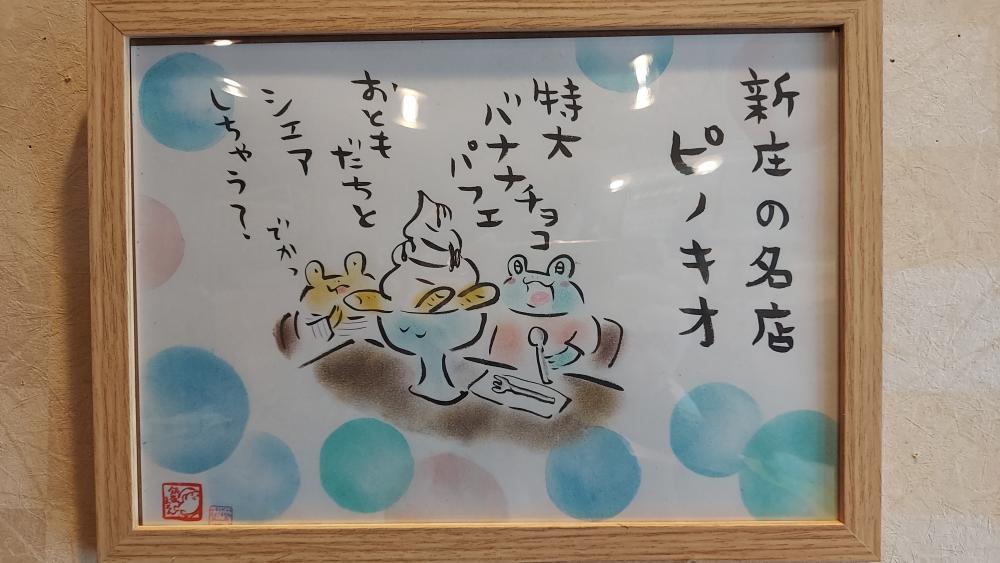 新庄の名店
ピノキオ
特大
バナナチョコ
パフェ
おとも
だちと
シェア
しちゃう？
でかっ